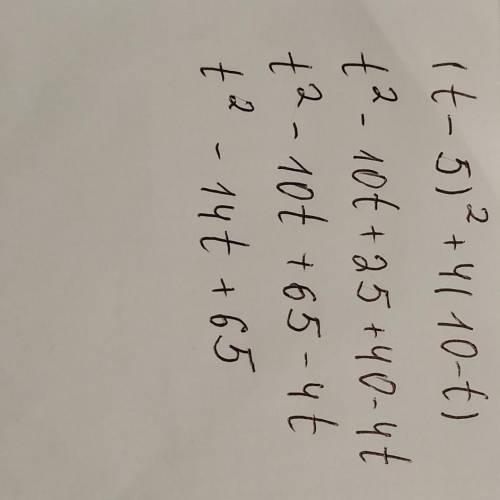 (t-5)² + 4(10-t)
t² - 10t + 25 + 40 - 4t
t² - 10t + 65 - 4t
t² - 14t + 65